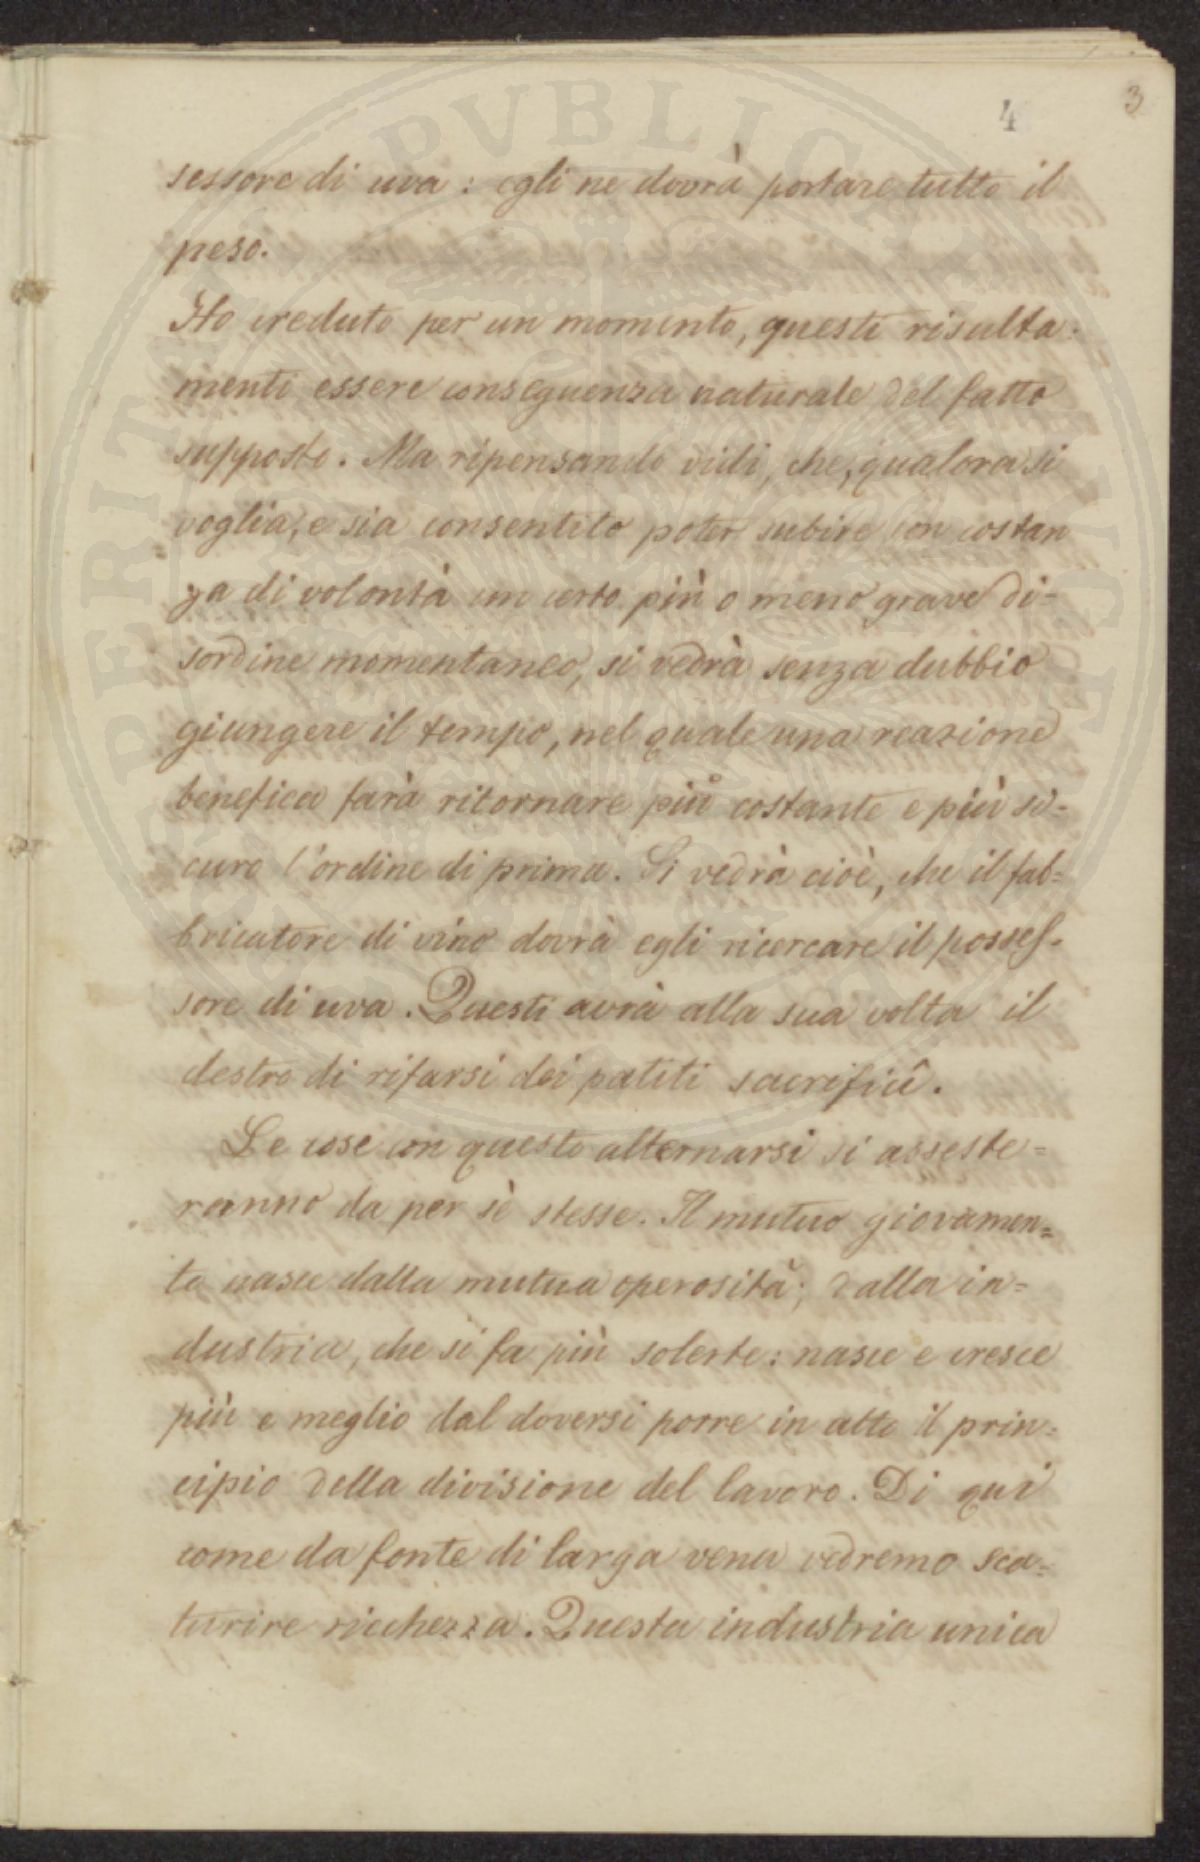 4
3
sessore di uva : egli ne dovrà portare tutto il
peso.
Ho creduto per un momento, questi risulta-
menti essere conseguenza naturale del fatto
supposto. Ma ripensando vidi, che, qualora si
voglia, e sia consentito poter subire con costan
za di volontà un certo più o meno grave di=
sordine momentaneo, si vedrà senza dubbio
giungere il tempo, nel quale una reazione
benefica farà ritornare più costante e più si=
curo l'ordine di prima. Si vedrà cioè, che il fab=
bricatore di vino dovrà egli ricercare il posses=
sore di uva. Questi avrà alla sua volta il
destro di rifarsi dei patiti sacrificî.
Le cose con questo alternarsi si asseste=
ranno da per sè stesse. Il mutuo giovamen=
to nasce dalla mutua operosità; dalla in=
dustria, che si fa più solerte: nasce e cresce
più e meglio dal doversi porre in atto il prin=
cipio della divisione del lavoro. Di qui
come da fonte di larga vena vedremo sca=
turire ricchezza. Questa industria unica